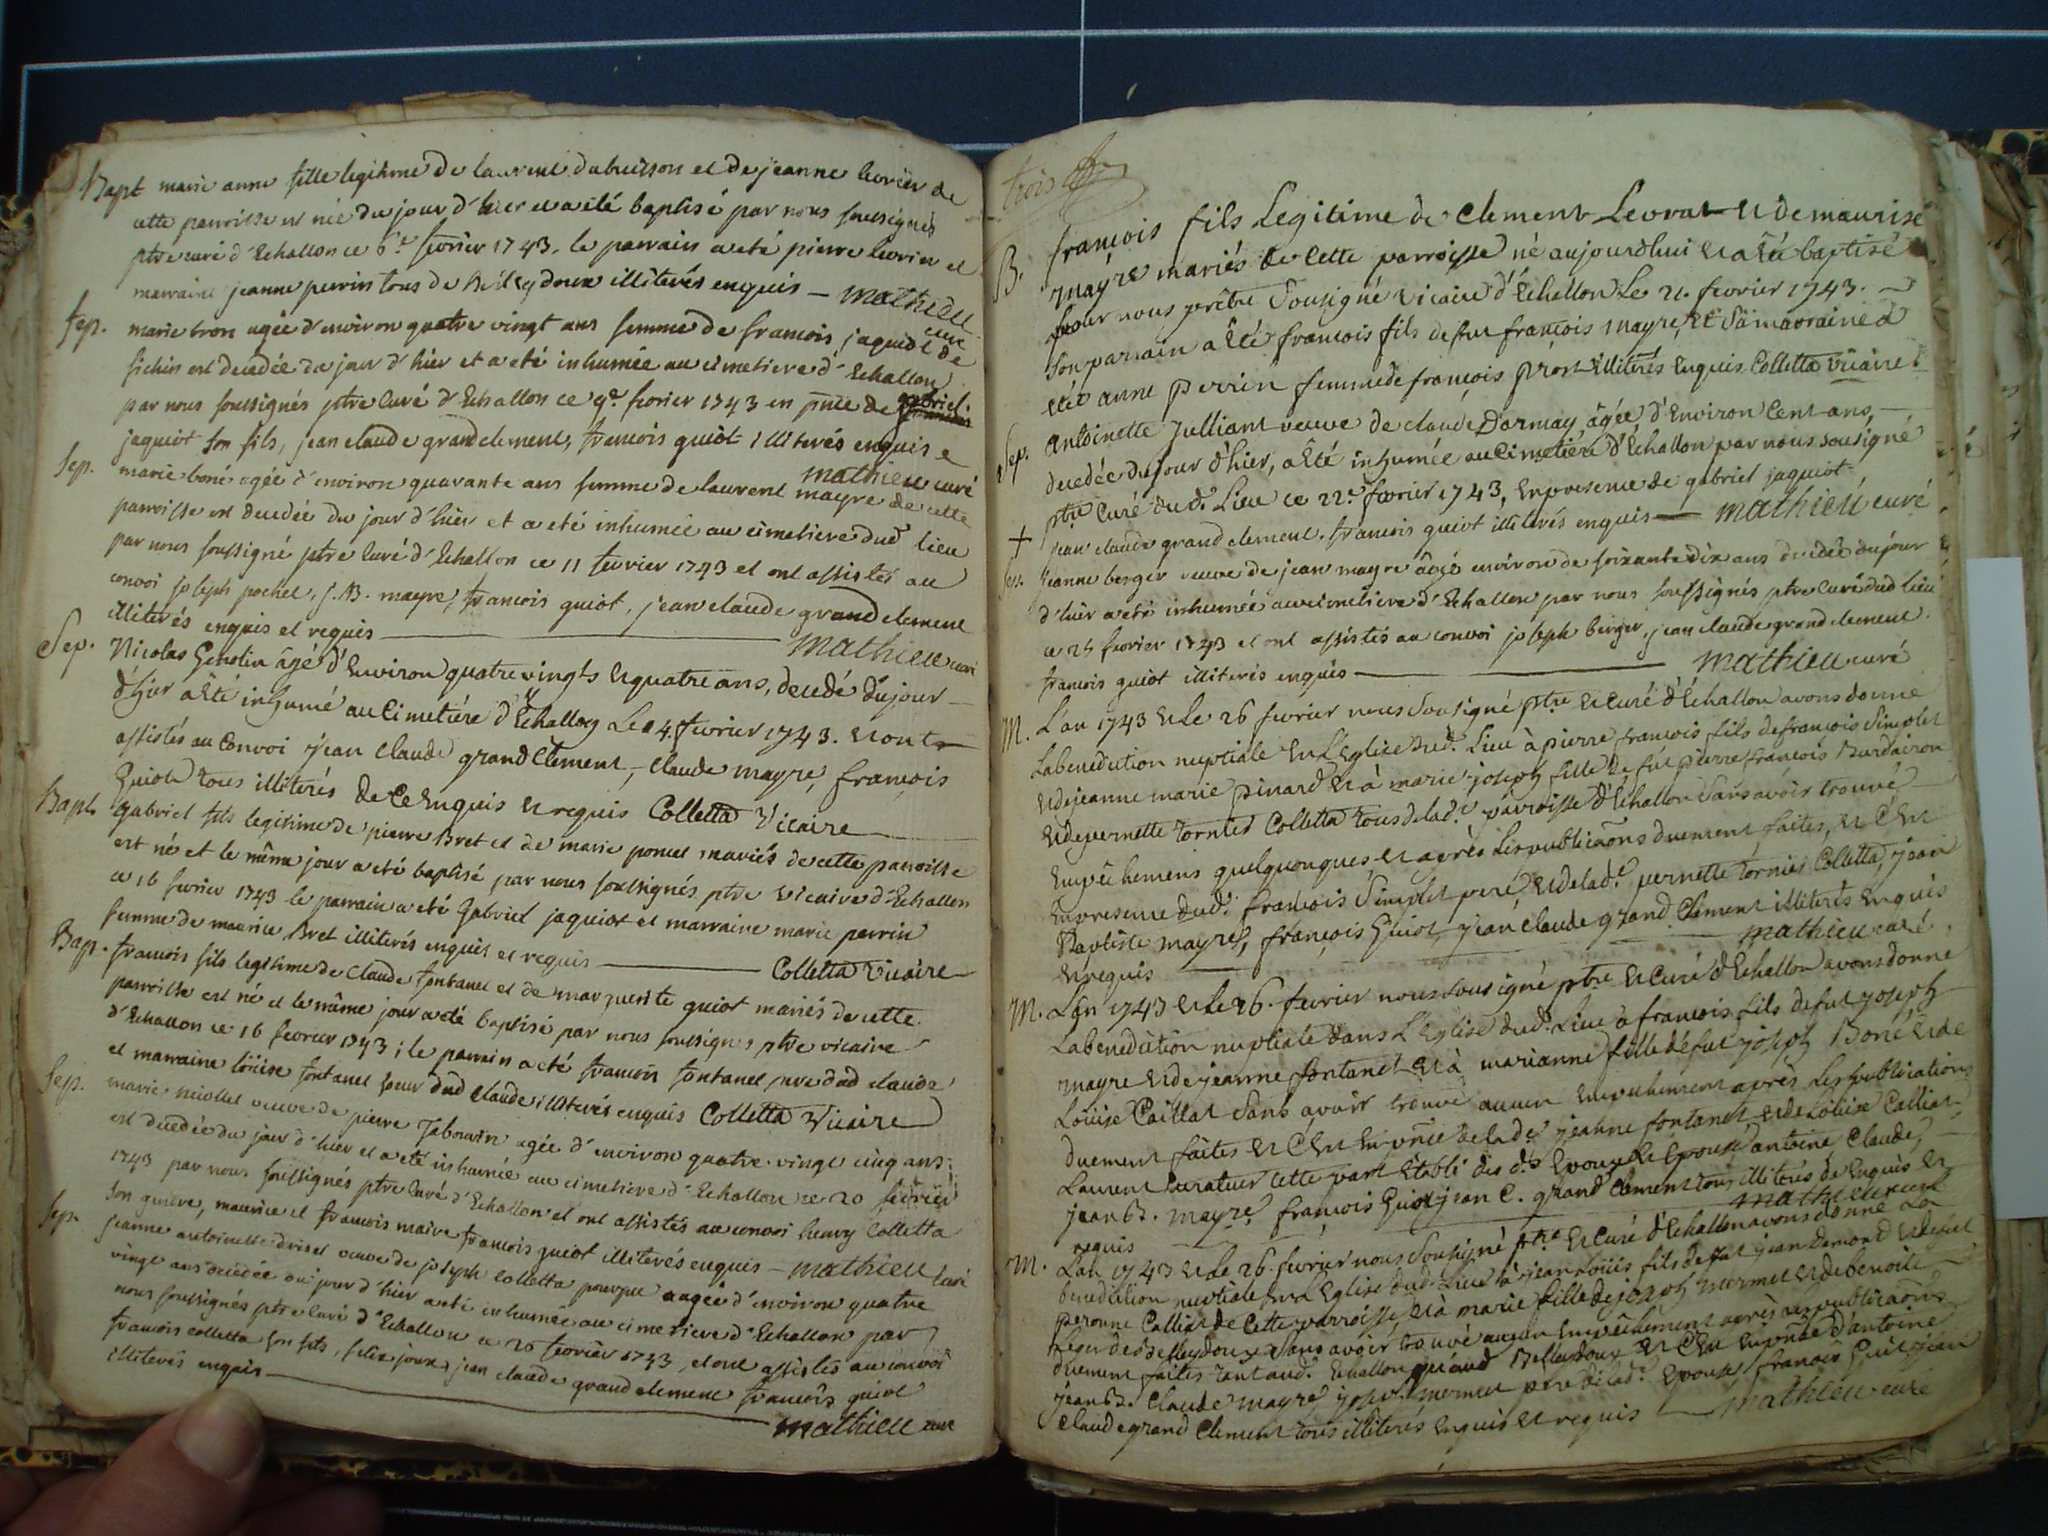 Bapt marie anne fille legitime de laurent dubuisson et de jeanne levrier de
cette parroisse est née du jour d'hier et a eté baptisé par nous soussignés
ptre curé d'Echallon ce 6e fevrier 1743. le parrain a eté pierre levrier et
marraine jeanne perrin tous de Belleydoux illiterés enquis — mathieu
curé
Sep. marie tron agée d'environ quatre vingt ans femme de francois jaquiot de
sichin est decedée du jour d'hier et a eté inhumée au cimetiere d'Echallon
par nous soussignés ptre curé d'Echallon ce 9e. fevrier 1743 en pnce de gabriel
jaquiot son fils, jean claude grandclement, francois quiot illiterés enquis
mathieu curé
Sep. marie boné agée d'environ quarante ans femme de laurent mayre de cette
parroisse est decedée du jour d'hier et a eté inhumée au cimetiere dud lieu
par nous soussigné ptre curé d'Echallon ce 11 fevrier 1743 et ont assistés au
convoi joseph pochet, J.B. mayre, francois quiot, jean claude grandclement
illiterés enquis et requis — mathieu curé
Sep. Nicolas Genolin âgé d'Environ quatrevingts et quatre ans, decedé du jour
d'hier a êté inhumé au Cimetiére d'Echallon Le 14 fevrier 1743. et ont
assistés au Convoi jean Claude grand Clement, Claude mayre, françois
Guiot tous illiterés de Ce Enquis et requis Colletta Vicaire
Bapt. Gabriel fils legitime de pierre Bret et de marie poncet mariés de cette parroisse
est né et le même jour a eté baptisé par nous soussignés ptre vicaire d'Echallon
ce 16 fevrier 1743 le parrain a eté Gabriel jaquiot et marraine marie perrin
femme de maurice Bret illiterés enquis et requis — Colletta Vicaire
Bap. francois fils legitime de Claude fontanet et de marguerite quiot mariés de cette
parroisse est né et le même jour a eté baptisé par nous soussignés ptre vicaire
d'Echallon ce 16 fevrier 1743; le parrain a eté francois fontanet pere dud claude
et marraine loüise fontanet soeur dud Claude illiterés enquis Colletta Vicaire
Sep. marie niollet veuve de pierre Tabourin agée d'environ quatre-vingt cinq ans
est decedée du jour d'hier et a eté inhumée au cimetiere d'Echallon ce 20 fevrier
1743 par nous soussignés ptre curé d'Echallon et ont assistés au convoi henry Colletta
son gendre, maurice et francois maire francois quiot illiterés enquis — mathieu curé
Sep. jeanne antoinette veuve de joseph Colletta agée d'environ quatre
vingt ans decedée du jour d'hier a eté inhumée au cimetiere d'Echallon par
nous soussignés ptre curé d'Echallon ce 20 fevrier 1743, et ont assistés au convoi
francois colletta son fils, felix joux, jean claude grandclement francois quiot
illiterés enquis — mathieu curé
trois
B. françois fils Legitime de Clement Levrat et de maurise
mayre mariés de Cette parroisse né aujourdhui et a êté baptisé
par nous prêtre Sousigné vicaire d'Echallon Le 21. fevrier 1743.
Son parrain a êté francois fils de fut françois mayre, et Sa marraine a
êté anne perrin femme de françois pron illiterés Enquis. Colletta Vicaire
Sep. antoinette Julliant veuve de claude Darmay âgée d'Environ Cent ans,
decedée du jour d'hier, a êté inhumée au Cimetiére d'Echallon par nous sousigné
ptre Curé dud. Lieu ce 22e fevrier 1743, En presence de gabriel jaquiot
+ jean claude grandclement. francois quiot illiterés enquis — mathieu curé
Sep. jeanne berger veuve de jean mayre agée environ de soixante dix ans decedée du jour
d'hier a eté inhumée au cimetiere d'Echallon par nous soussignés ptre curé dud lieu
ce 25 fevrier 1743 et ont assistés au convoi joseph berger, jean claude grandclement.
francois quiot illiterés enquis — mathieu curé
M. L'an 1743 et Le 26 fevrier nous Sousigné ptre et Curé d'Echallon avons donné
La benediction nuptiale En L'Eglise dud. Lieu à pierre francois fils de françois Simplet
et de jeanne marie pinard et à marie joseph fille de fut pierre francois Burdairon
et de pernette tornier Colletta tous de lad.e parroisse d'Echallon Sans avoir trouvé
Empêchemens quelquonques et après Les publicaõns duement faites, et C'Est
En presence dud. francois Simplet pere et de lad.e pernette tornier Colletta, jean
Baptiste mayre, françois Guiot, jean claude grand Clement illiterés Enquis
et requis — mathieu curé.
M. L'an 1743 et Le 26. fevrier nous sousigné ptre et Curé d'Echallon avons donné
La benediction nuptiale dans L'Eglise dud. Lieu à francois fils de fut joseph
mayre et de jeanne fontanet et à marianne fille de fut joseph Boné et de
Loüise Caillat Sans avoir trouvé aucun Empechement après Les publications
duement faites et C'Est En pnce de lad.e jeanne fontanet et de Loüise Calliat
Laurent Curateur cette part établi des d.ts Epoux et Epouse, antoine Claude,
jean B. mayre, françois Guiot jean C. grand Clement tous illiterés de Enquis et
requis — mathieu curé
M. L'an 1743 et Le 26. fevrier nous Sousigné ptre et Curé d'Echallon avons donné La
benediction nuptiale En L'Eglise dud. Lieu à jean Loüis fils de fut jean Damond et de fut
peronne Calliat de Cette parroisse, et à marie fille de joseph mermet et de benoite
Sans avoir trouvé aucun Empêchement après Les publicaõns
duement faites tant aud. Echallon qu'aud Belleydoux et C'Est En pnce d'antoine
jean B. Claude mayre, joseph mermet pere de lad.e Epouse francois Guiot jean
Claude grand Clement tous illiterés Enquis et requis — mathieu curé